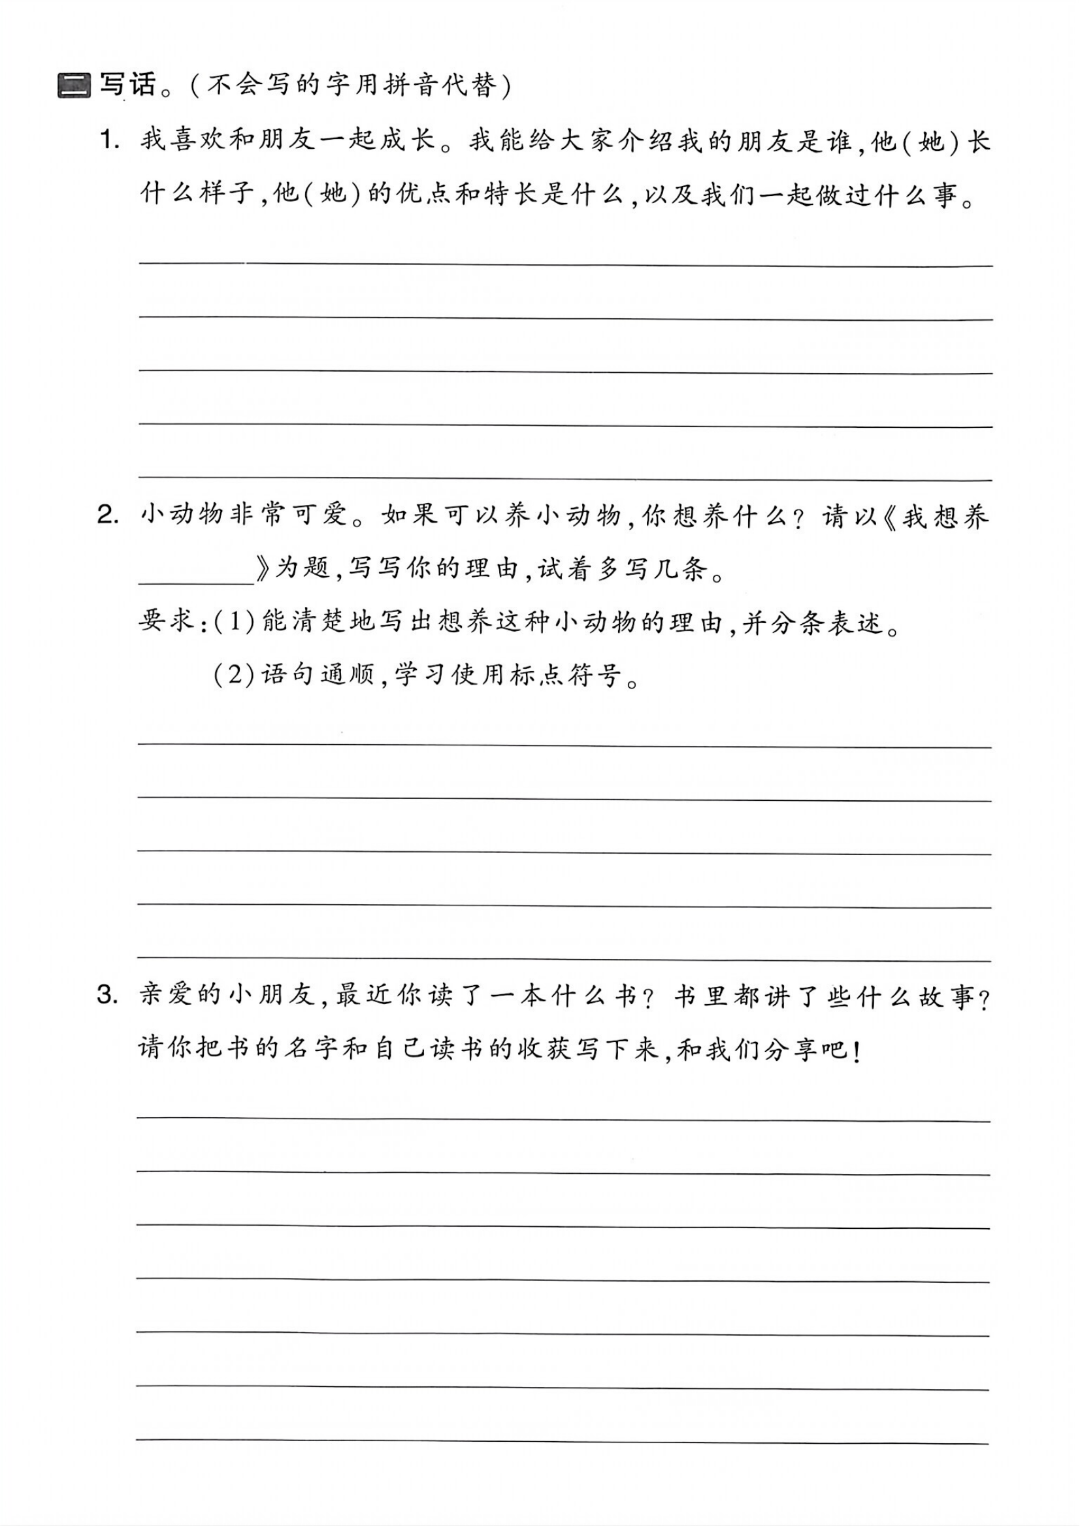 二 写话。(不会写的字用拼音代替)
1. 我喜欢和朋友一起成长。我能给大家介绍我的朋友是谁,他(她)长
什么样子,他(她)的优点和特长是什么,以及我们一起做过什么事。
2. 小动物非常可爱。如果可以养小动物,你想养什么? 请以《我想养
________》为题,写写你的理由,试着多写几条。
要求:(1)能清楚地写出想养这种小动物的理由,并分条表述。
(2)语句通顺,学习使用标点符号。
3. 亲爱的小朋友,最近你读了一本什么书? 书里都讲了些什么故事?
请你把书的名字和自己读书的收获写下来,和我们分享吧!